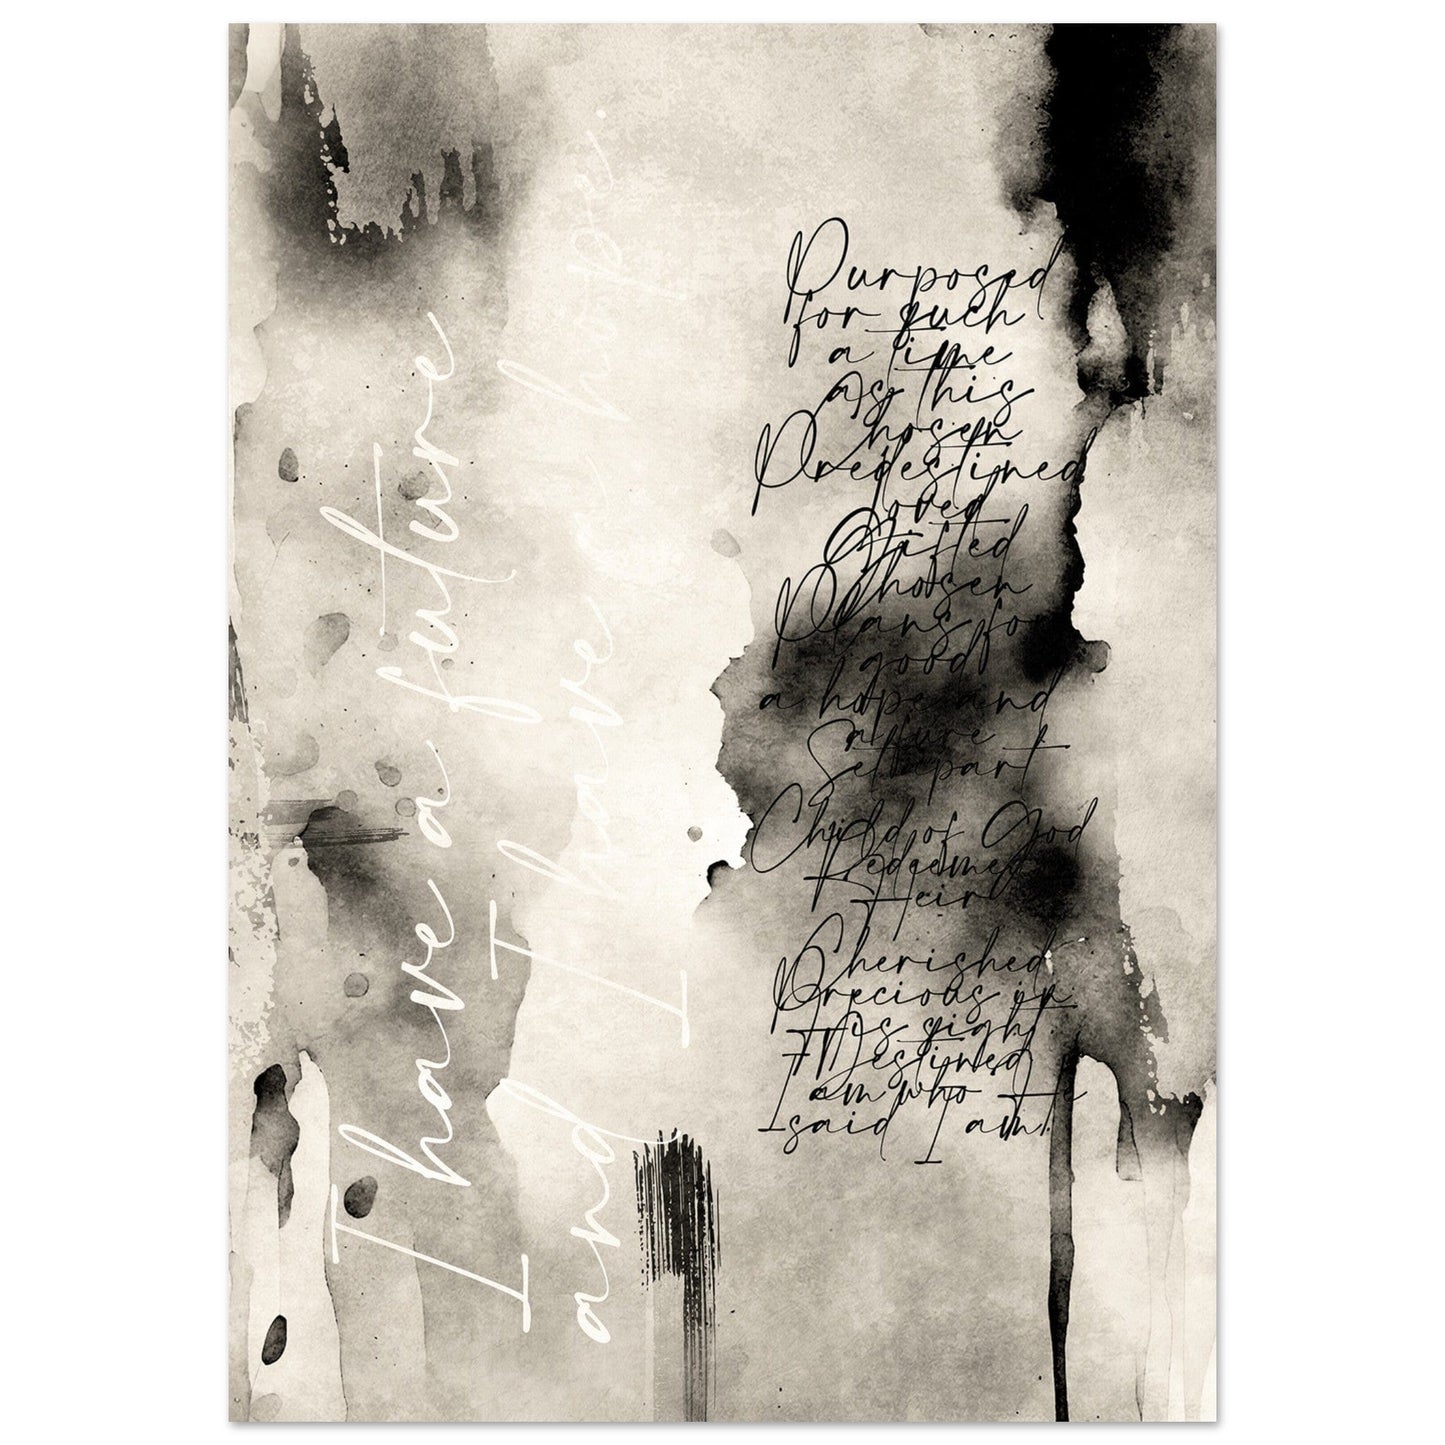 I have a future
and I have a hope.
Purposed
for such
a time
as this
Chosen
Predestined
Loved
Gifted
Chosen
Plans for
good
a hope and
a future
Set apart
Child of God
Redeemed
Heir
Cherished
Precious in
His sight
Destined
I am who He
said I am.